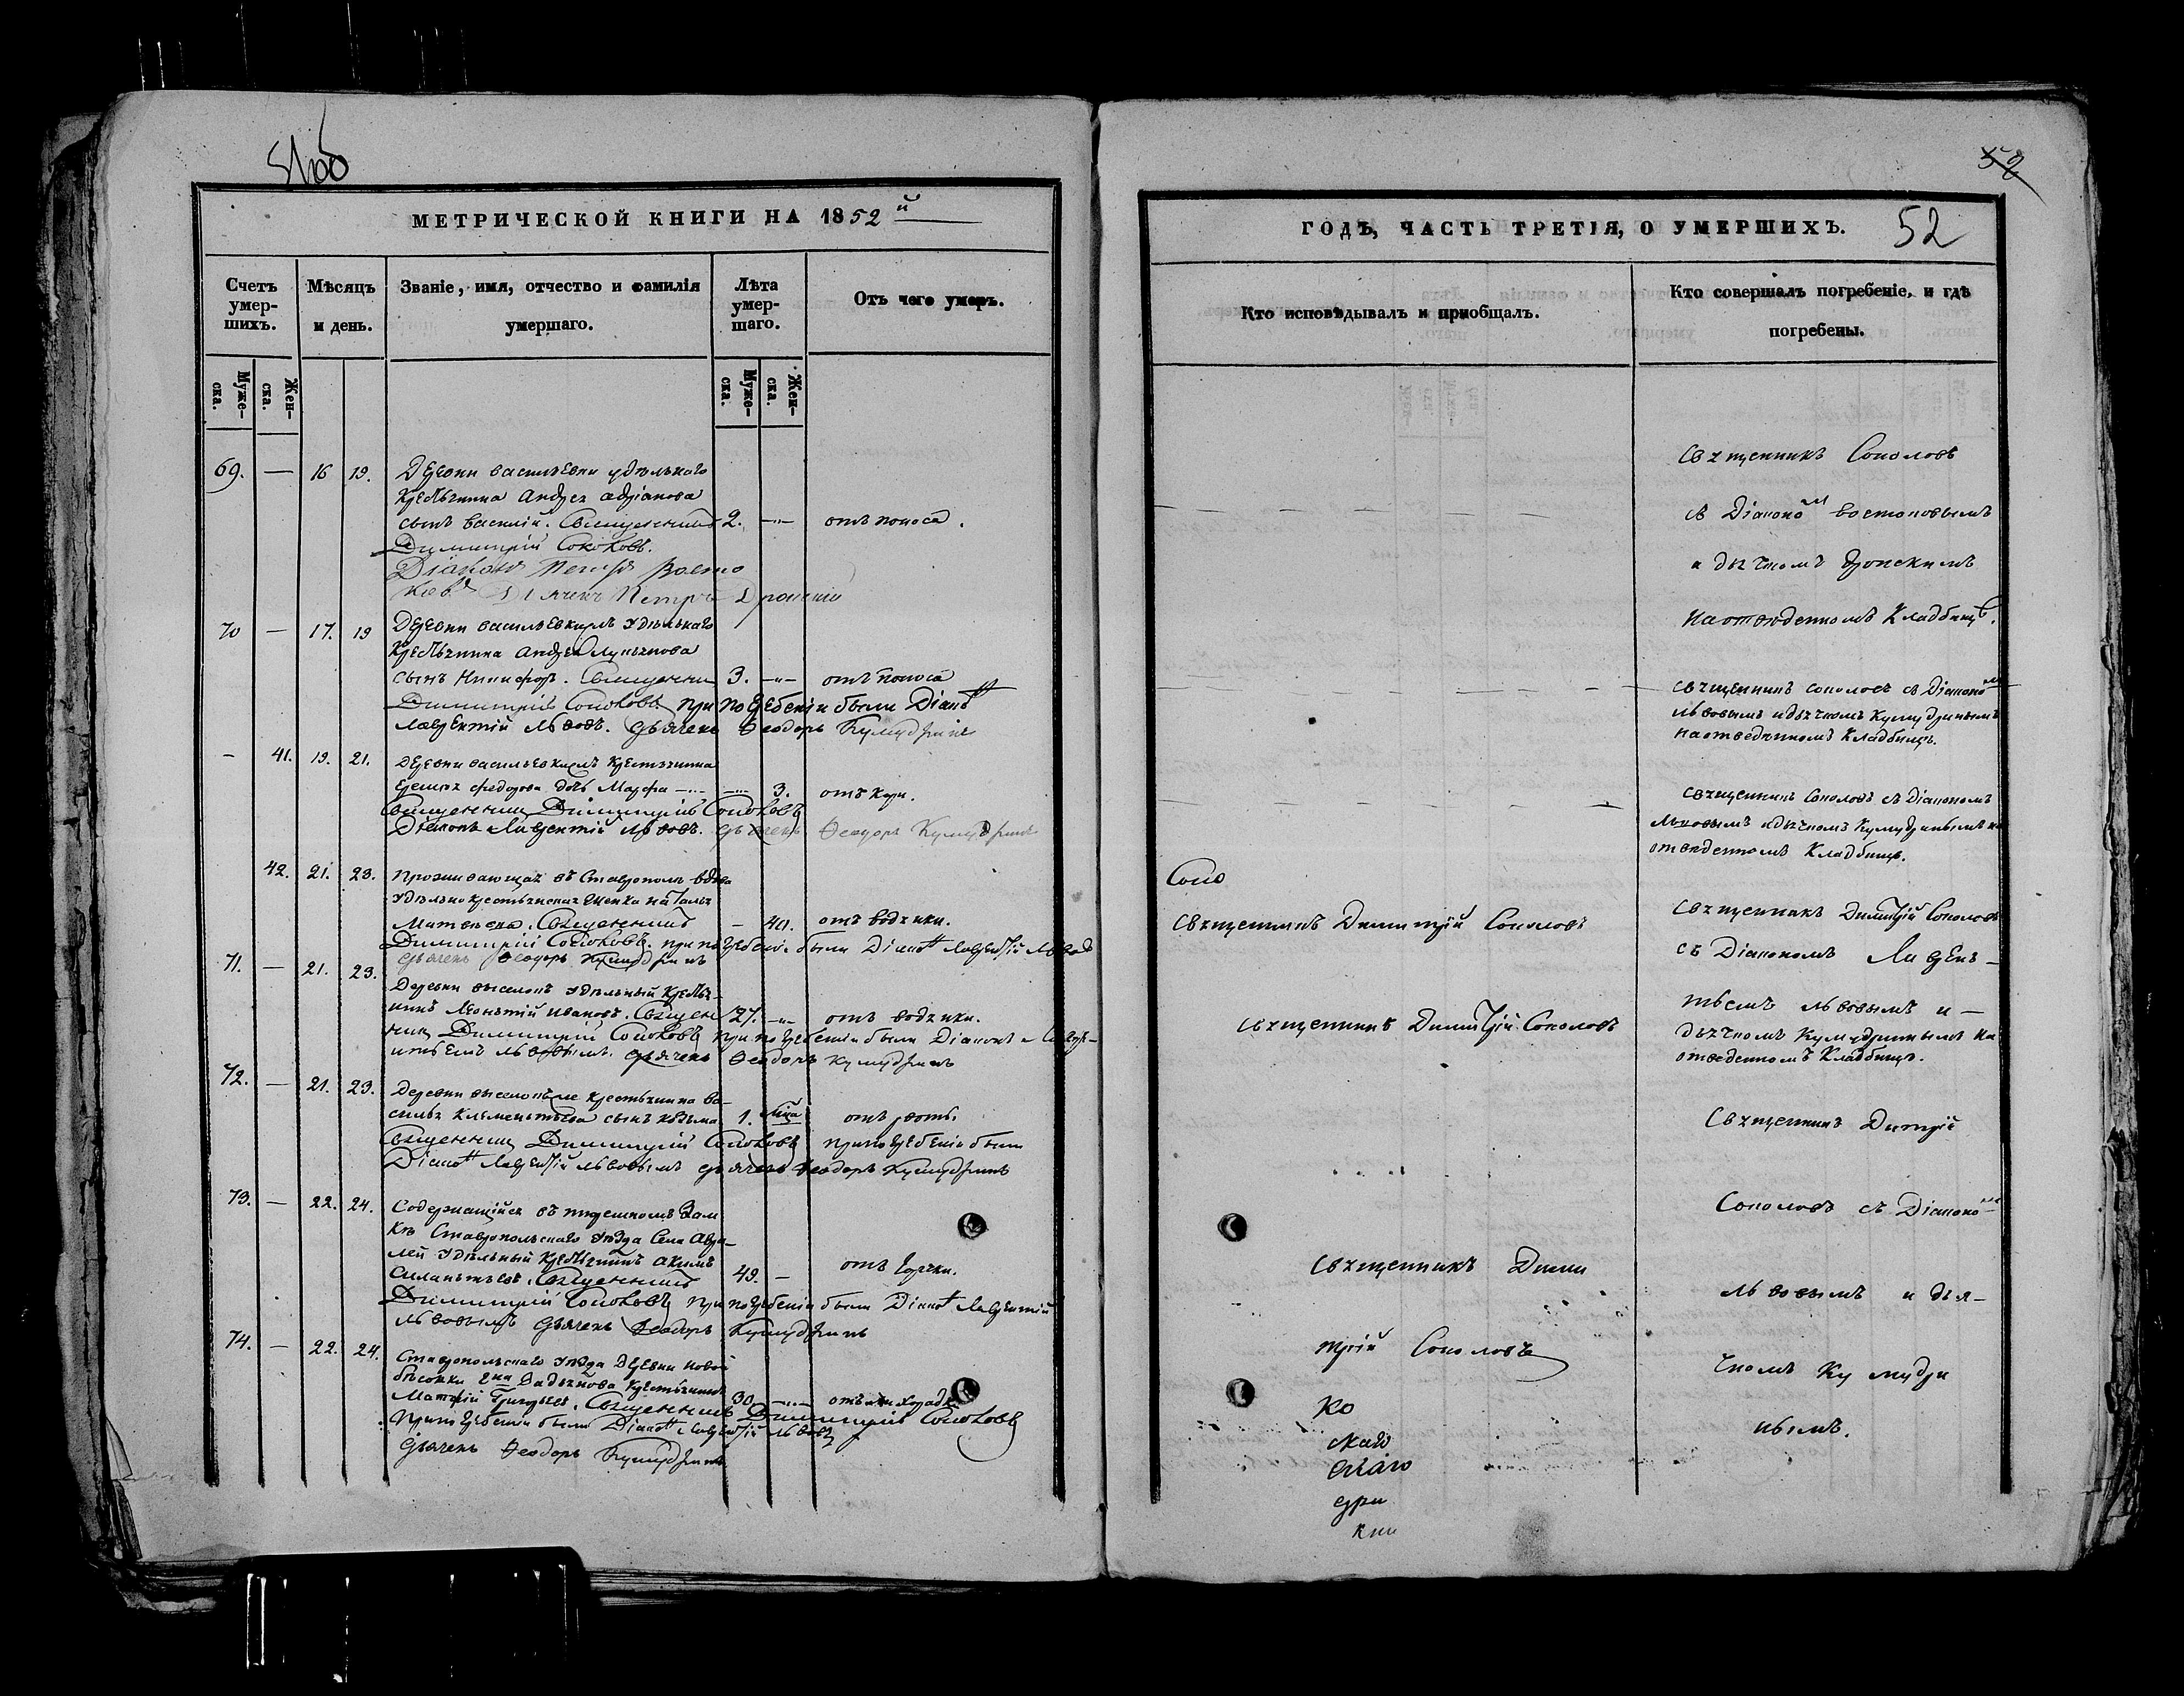 51об
МЕТРИЧЕСКОЙ КНИГИ НА 1852й
Счетъ умер-шихъ.
Мѣсяцъ и день.
Званіе, имя, отчество и фамилія умершаго.
Лѣта умер-шаго.
Отъ чего умеръ.
Муже-ска.
Жен-ска.
Муже-ска.
Жен-ска.
69. — 16 19. Деревни васильевки удѣльнаго
крестьянина Андрея адріанова
сынъ василій. Священникъ 2. —„— отъ поноса.
Димитрій Соколовъ.
Діаконъ Петръ Восто
ковъ Дьячекъ Петръ
70 — 17. 19 Деревни васильевки удѣльнаго
крестьянина Андрея
сынъ Никифоръ. Священни 3. —„— отъ поноса
Димитрій Соколовъ при погребеніи были Діакон
лаврентій Львовъ. дьячекъ Ѳеодоръ Кумудринъ
— 41. 19. 21. Деревни васильевки крестьянина
федорова дочь Марфа —„— —„— 3. отъ кори.
Священникъ Димитрій Соколовъ
Діаконъ Лаврентій Львовъ. дьячекъ Ѳеодоръ Кумудринъ
42. 21. 23. Проживающая въ Ставрополѣ вдова
удѣльно крестьянская женка Наталья
Матвеева. Священникъ — 40. отъ водянки.
Димитрій Соколовъ. при погребеніи были Діакон Лаврентій Львовъ
дьячекъ Ѳеодоръ Кумудринъ
71. — 21. 23. Деревни выселокъ удѣльный кресть-
нинъ Леонтій Ивановъ. Священ 27. —„— отъ водянки.
никъ Димитрій Соколовъ при погребеніи были Діаконъ Лавре-
нтьемъ львовымъ. дьячекъ Ѳеодоръ Кумудринъ
72. — 21. 23. Деревни выселокъ крестьянина ва-
силья Клементьева сынъ козьма 1. мца отъ рвоты.
Священникъ Димитрій Соколовъ при погребеніи были
Діакон Лаврентій львовымъ дьячекъ Ѳеодоръ Кумудринъ
73. — 22. 24. Содержащійся въ тюремномъ зам
кѣ Ставропольскаго уѣзда Села Авра-
лей удѣльный крестьянинъ акимъ
Силантьевъ. Священникъ 49. — отъ горячки.
Димитрій Соколовъ при погребеніи были Діакон Лаврентій
львовымъ дьячекъ Ѳеодоръ Кумудринъ
74. — 22. 24. Ставропольскаго уѣзда Деревни новой
крестьянинъ
Матфій Григорьев. Священникъ 30 —„— отъ лихорадки
Димитрій Соколовъ
При погребеніи были Діакон Лаврентій Львовъ
дьячекъ Ѳеодоръ Кумудринъ
52
ГОДЪ, ЧАСТЬ ТРЕТІЯ, О УМЕРШИХЪ. 52
Кто исповѣдывалъ и пріобщалъ.
Кто совершалъ погребеніе, и гдѣ погребены.
Священникъ Соколовъ
съ Діакономъ востоковымъ
и дьячкомъ
на отведенномъ Кладбищѣ.
священникъ соколовъ съ Діакономъ
львовымъ и дьячкомъ Кумудринымъ
на отведенномъ Кладбищѣ.
священникъ Соколовъ съ Діакономъ
львовымъ и дьячкомъ Кумудринымъ на
отведенномъ Кладбищѣ.
Соко
Священникъ Димитрій Соколовъ
Священникъ Димитрій Соколовъ
съ Діакономъ Лаврен-
Священникъ Димитрій Соколовъ
тьемъ львовымъ и —
дьячкомъ Кумудринымъ на
отведенномъ Кладбищѣ.
Священникъ Дитрій
Соколовъ съ Діаконо
Священникъ Дими
трій Соколовъ
львовымъ и дья-
чкомъ Кумудри
нымъ.
Ко